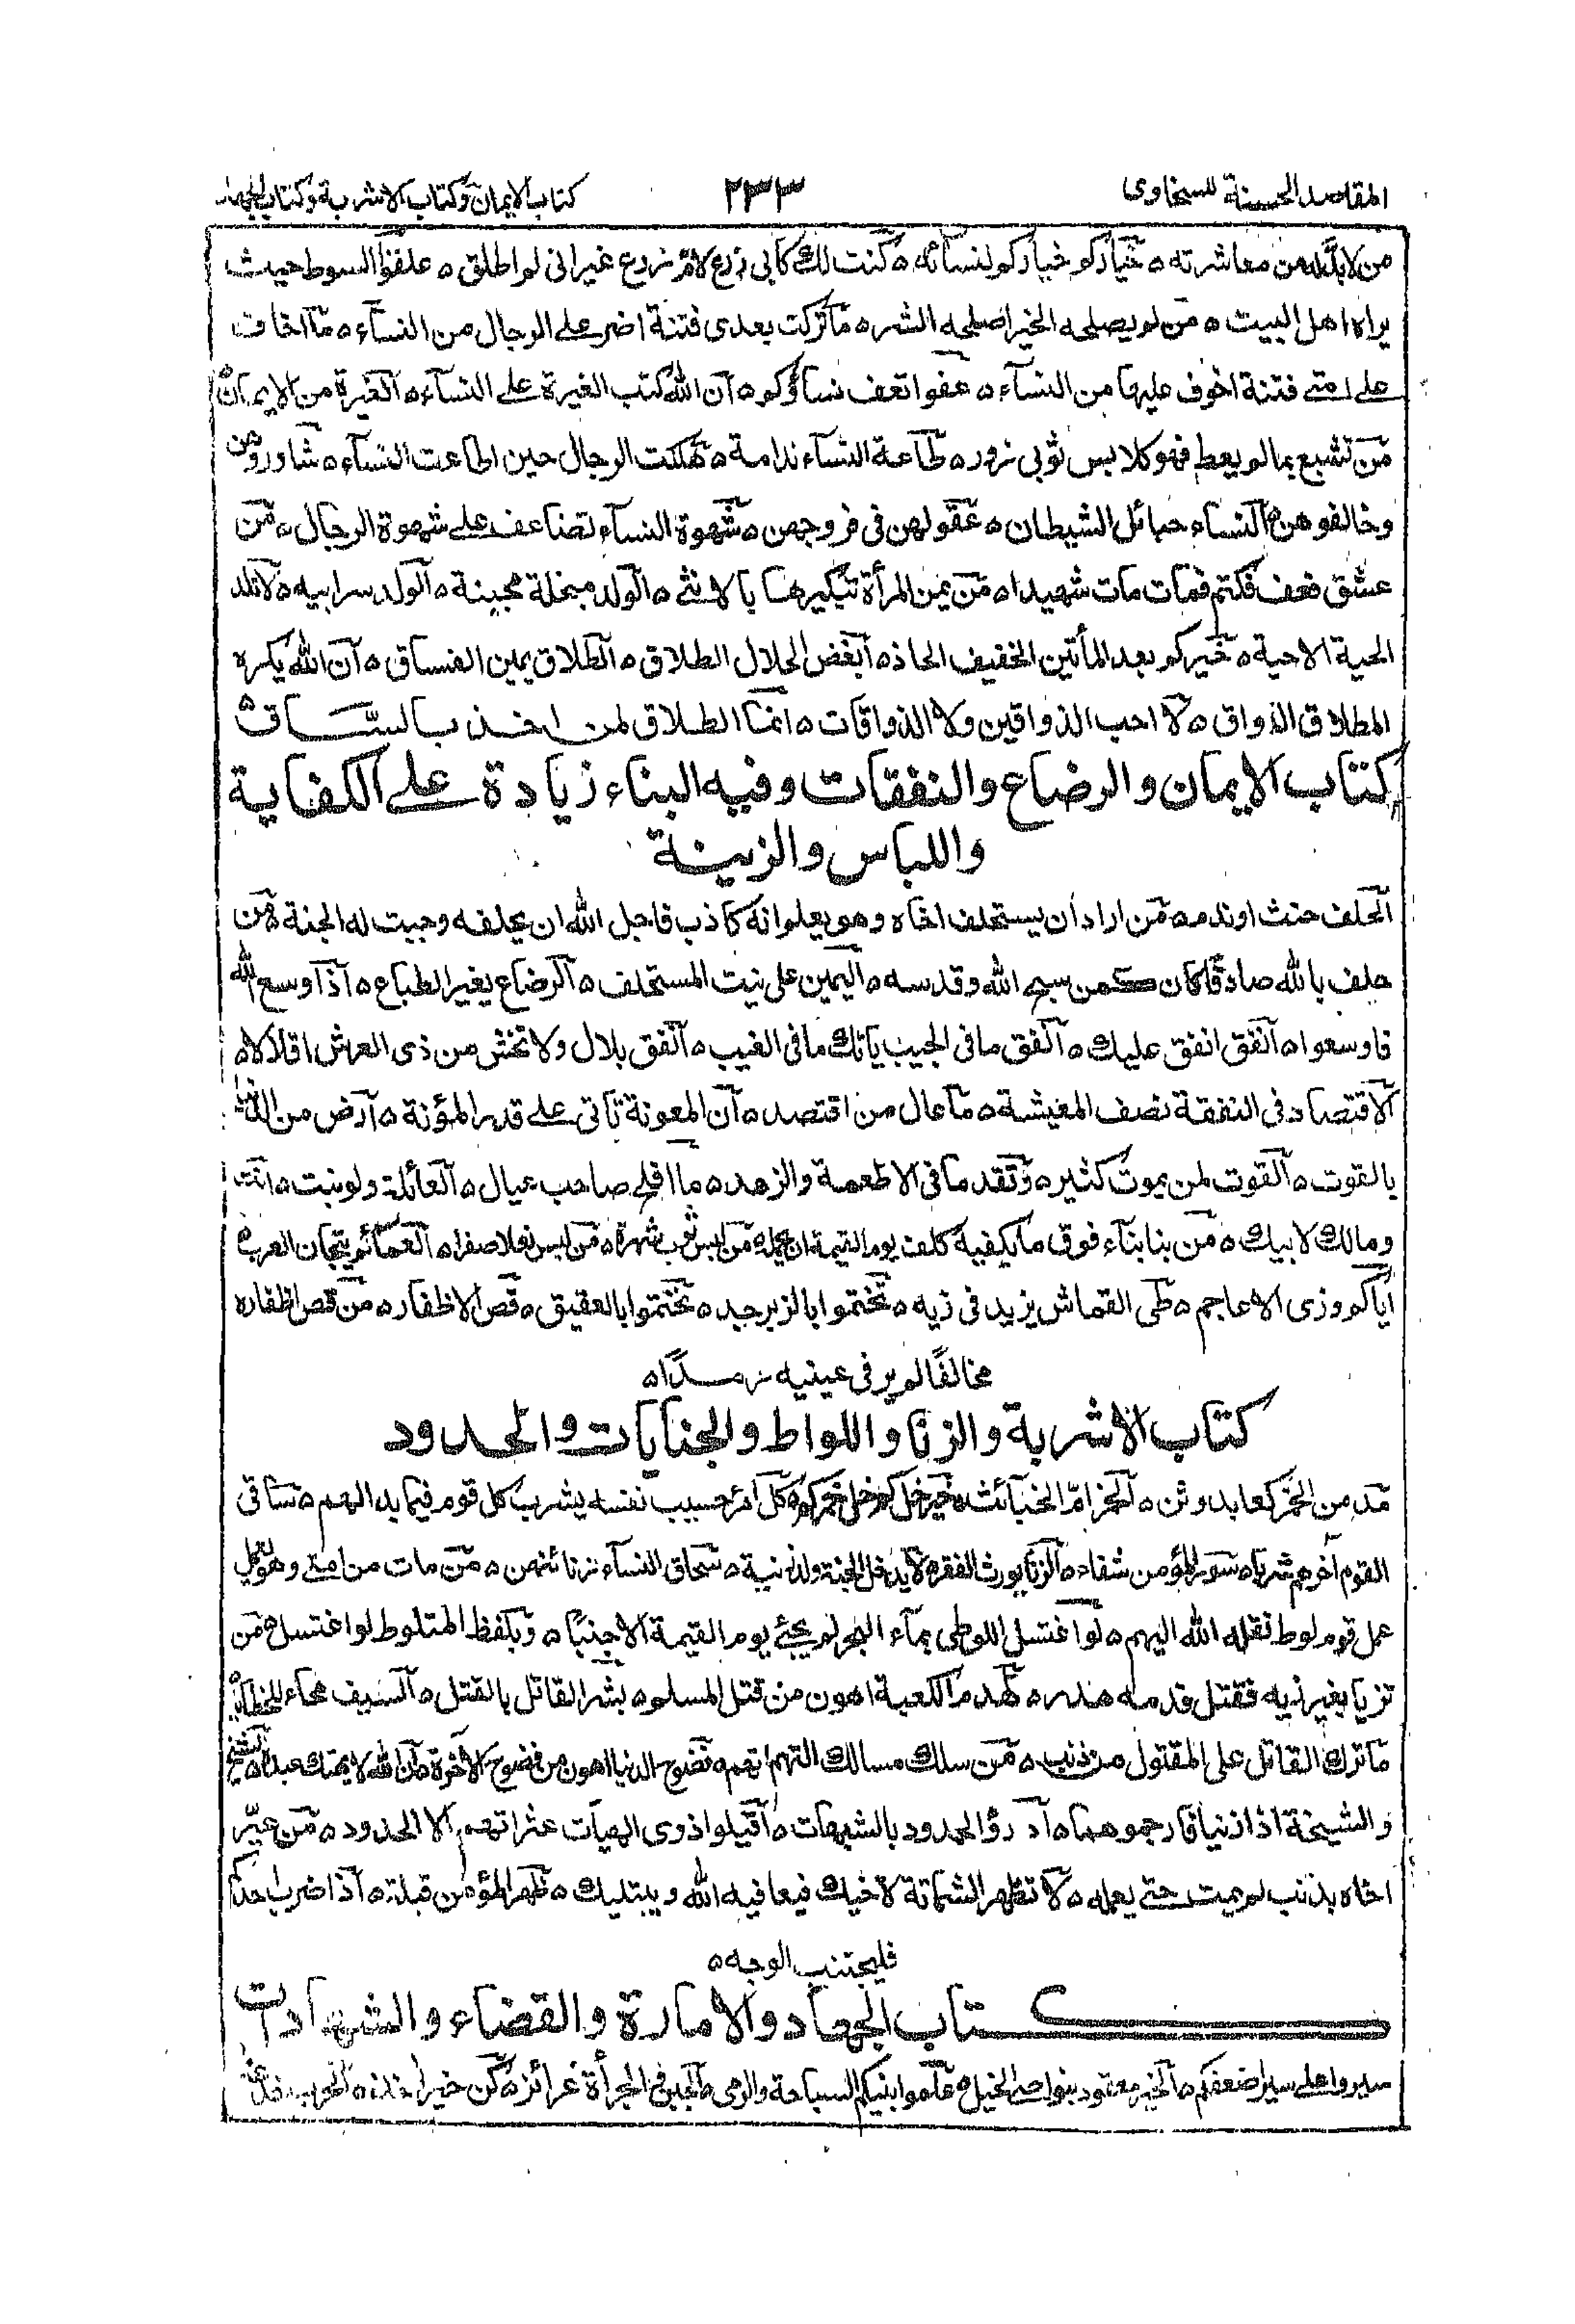 المقاصد الحسنة للسخاوى
٢٣٣
كتاب الايمان وكتاب الاشربة وكتاب الجهاد
من لابد له من معاشرته ه خياركم خياركم لنسائه ه كنت لك كابى زرع لام زرع غير انى لم اطلق ه علقوا السوط حيث
يراه اهل البيت ه من لم يصلحه الخير اصلحه الشر ه ما تركت بعدى فتنة اضر على الرجال من النساء ه ما اخاف
على امتى فتنة اخوف عليها من النساء ه عفوا تعف نساؤكم ه ان الله كتب الغيرة على النساء ه الغيرة من الايمان ه
من تشبع بما لم يعط فهو كلابس ثوبى زور ه طاعة النساء ندامة ه هلكت الرجال حين اطاعت النساء ه شاوروهن
وخالفوهن ه النساء حبائل الشيطان ه عقولهن فى فروجهن ه شهوة النساء تضاعف على شهوة الرجال ه من
عشق فعف فكتم فمات مات شهيدا ه من يمن المرأة تبكيرها بالانثى ه الولد مبخلة مجبنة ه الولد سر ابيه ه لا تلد
الحية الا حية ه خيركم بعد المأتين الخفيف الحاذ ه ابغض الحلال الطلاق ه الطلاق يمين الفساق ه ان الله يكره
المطلاق الذواق ه لا احب الذواقين ولا الذواقات ه انما الطلاق لمن اخذ بالساق ه
كتاب الايمان والرضاع والنفقات وفيه البناء زيادة على الكفاية
واللباس والزينة
الحلف حنث او ندم ه من اراد ان يستحلف اخاه وهو يعلم انه كاذب فاجل الله ان يحلفه وجبت له الجنة ه من
حلف بالله صادقا كان كمن سبح الله وقدسه ه اليمين على نيت المستحلف ه الرضاع يغير الطباع ه اذا وسع الله
فاوسعوا ه انفق انفق عليك ه انفق ما فى الجيب ياتك ما فى الغيب ه انفق بلال ولا تخش من ذى العرش اقلالا ه
الاقتصاد فى النفقة نصف المعيشة ه ما عال من اقتصد ه ان المعونة تاتى على قدر المؤنة ه ارض من الدنيا
بالقوت ه القوت لمن يموت كثير ه وتقدم فى الاطعمة والزهد ه ما افلح صاحب عيال ه العائلة ولو بنت ه انت
ومالك لابيك ه من بنا بناء فوق ما يكفيه كلف يوم القيمة ان يحمله ه من لبس ثوب شهرة ه من لبس نعلا صفرا ه العمائم تيجان العرب ه
اياكم وزى الاعاجم ه طى القماش يزيد فى زيه ه تختموا بالزبرجد ه تختموا بالعقيق ه قص الاظفار ه من قص اظفاره
مخالفا لم ير فى عينيه رمدا ه
كتاب الاشربة والزنا واللواط والجنايات والحدود
مدمن الخمر كعابد وثن ه الخمر ام الخبائث ه خير خلكم خل خمركم ه كل امرء حسيب نفسه يشرب كل قوم فيما بدا لهم ه ساقى
القوم آخرهم شربا ه سور المؤمن شفاء ه الزنا يورث الفقر ه لا يدخل الجنة ولد زنية ه سحاق النساء زنا ئهن ه من مات من امتى وهو يعمل
عمل قوم لوط نقله الله اليهم ه لو اغتسل اللوطى بماء البحر لم يجئ يوم القيمة الا جنبا ه وبلفظ المتلوط لو اغتسل ه من
تزيا بغير زيه فقتل فدمه هدر ه هدم الكعبة اهون من قتل المسلم ه بشر القاتل بالقتل ه السيف محاء للخطايا
ما ترك القاتل على المقتول من ذنب ه من سلك مسالك التهم اتهم ه فضوح الدنيا اهون من فضوح الآخرة ه ان الله لا يهتك عبدا ه الشيخ
والشيخة اذا زنيا فارجموهما ه ادرؤ الحدود بالشبهات ه اقيلوا ذوى الهيأت عثراتهم الا الحدود ه من عير
اخاه بذنب لم يمت حتى يعمله ه لا تظهر الشماتة لاخيك فيعافيه الله ويبتليك ه ظهر المؤمن قبلة ه اذا ضرب احدكم
فليجتنب الوجه ه
كتاب الجهاد والامارة والقضاء والشهادات
سيروا على سير اضعفكم ه الخير معقود بنواصى الخيل ه علموا بنيكم السباحة والرمى ه الجبن والجرأة غرائز ه كن خير اخذ ه الحرب خدعة